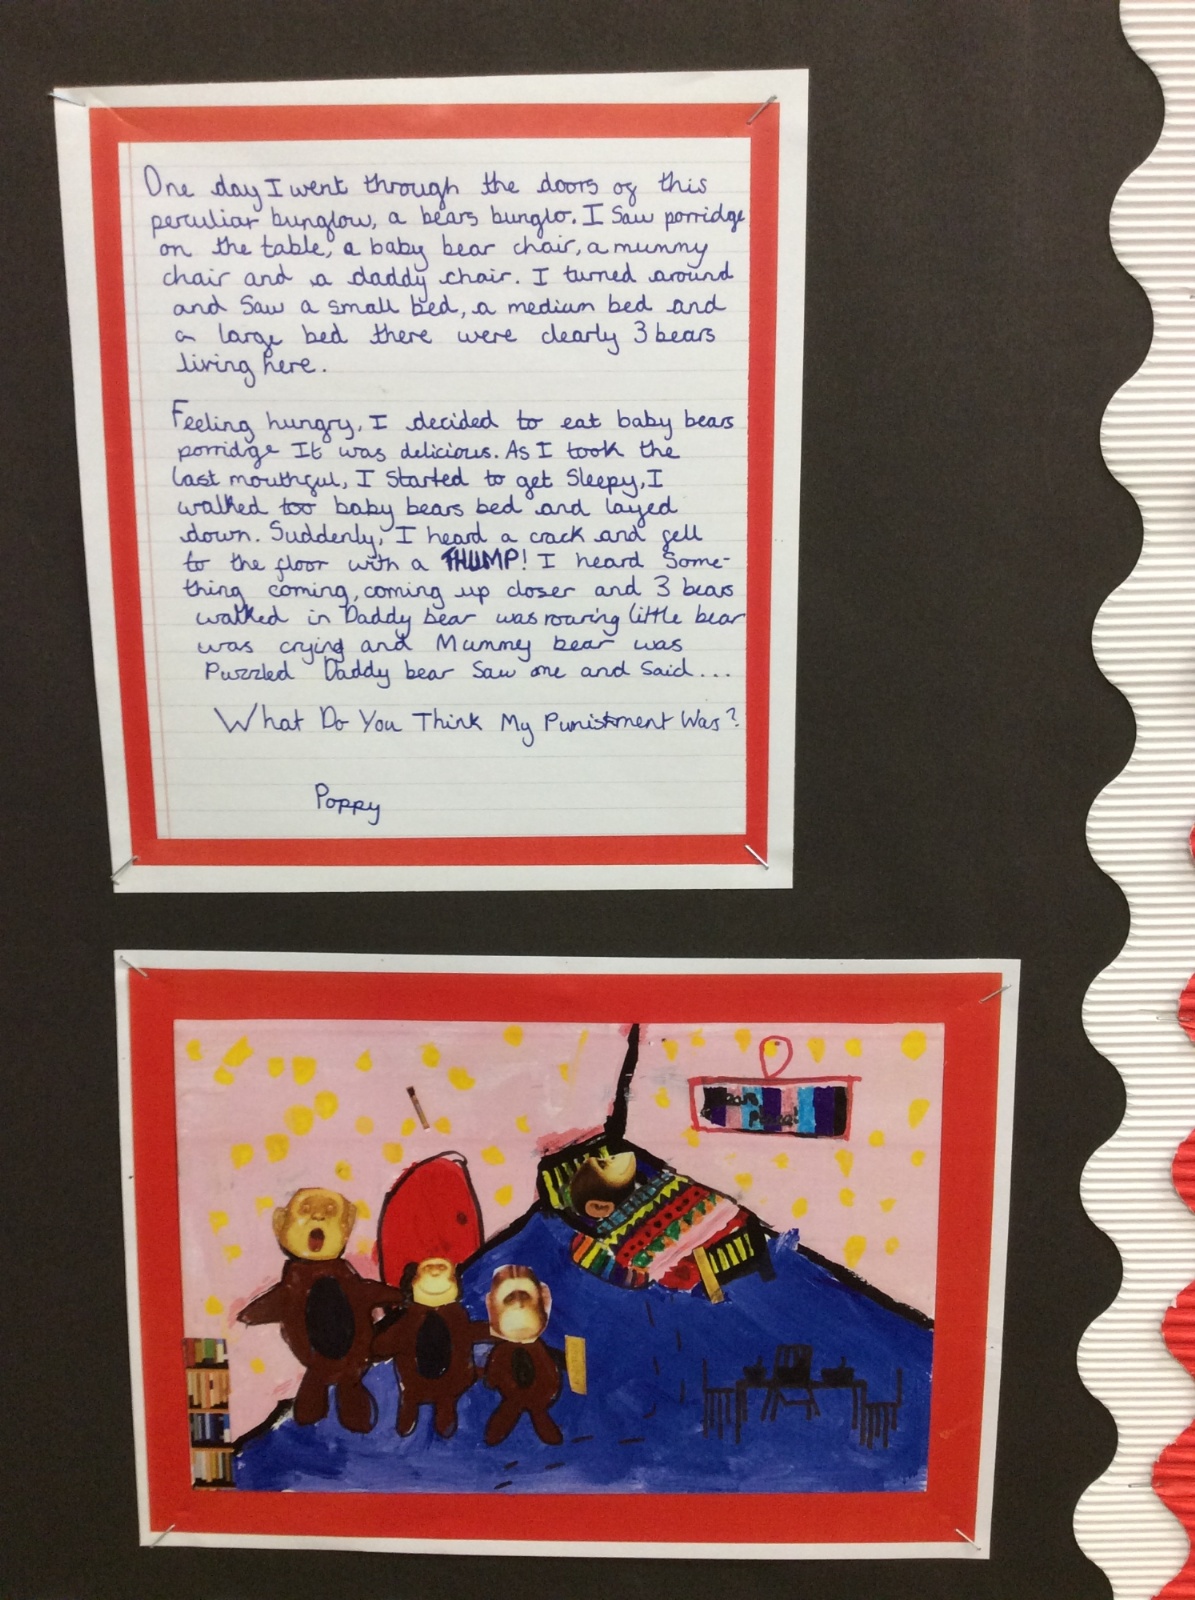 One day I went through the doors of this
peculiar bunglow, a bears bunglo. I Saw porridge
on the table, a baby bear chair, a mummy
chair and a daddy chair. I turned around
and Saw a small bed, a medium bed and
a large bed there were clearly 3 bears
living here.
Feeling hungry, I decided to eat baby bears
porridge It was delicious. As I took the
last mouthful, I Started to get Sleepy, I
walked too baby bears bed and layed
down. Suddenly, I heard a crack and fell
to the floor with a THUMP! I heard Some-
thing coming, coming up closer and 3 bears
walked in Daddy bear was roaring little bear
was crying and Mummy bear was
Puzzled Daddy bear Saw me and Said...
What Do You Think My Punishment Was?
Poppy